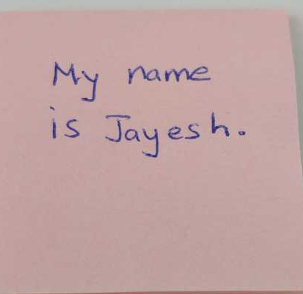 My name
is Jayesh.